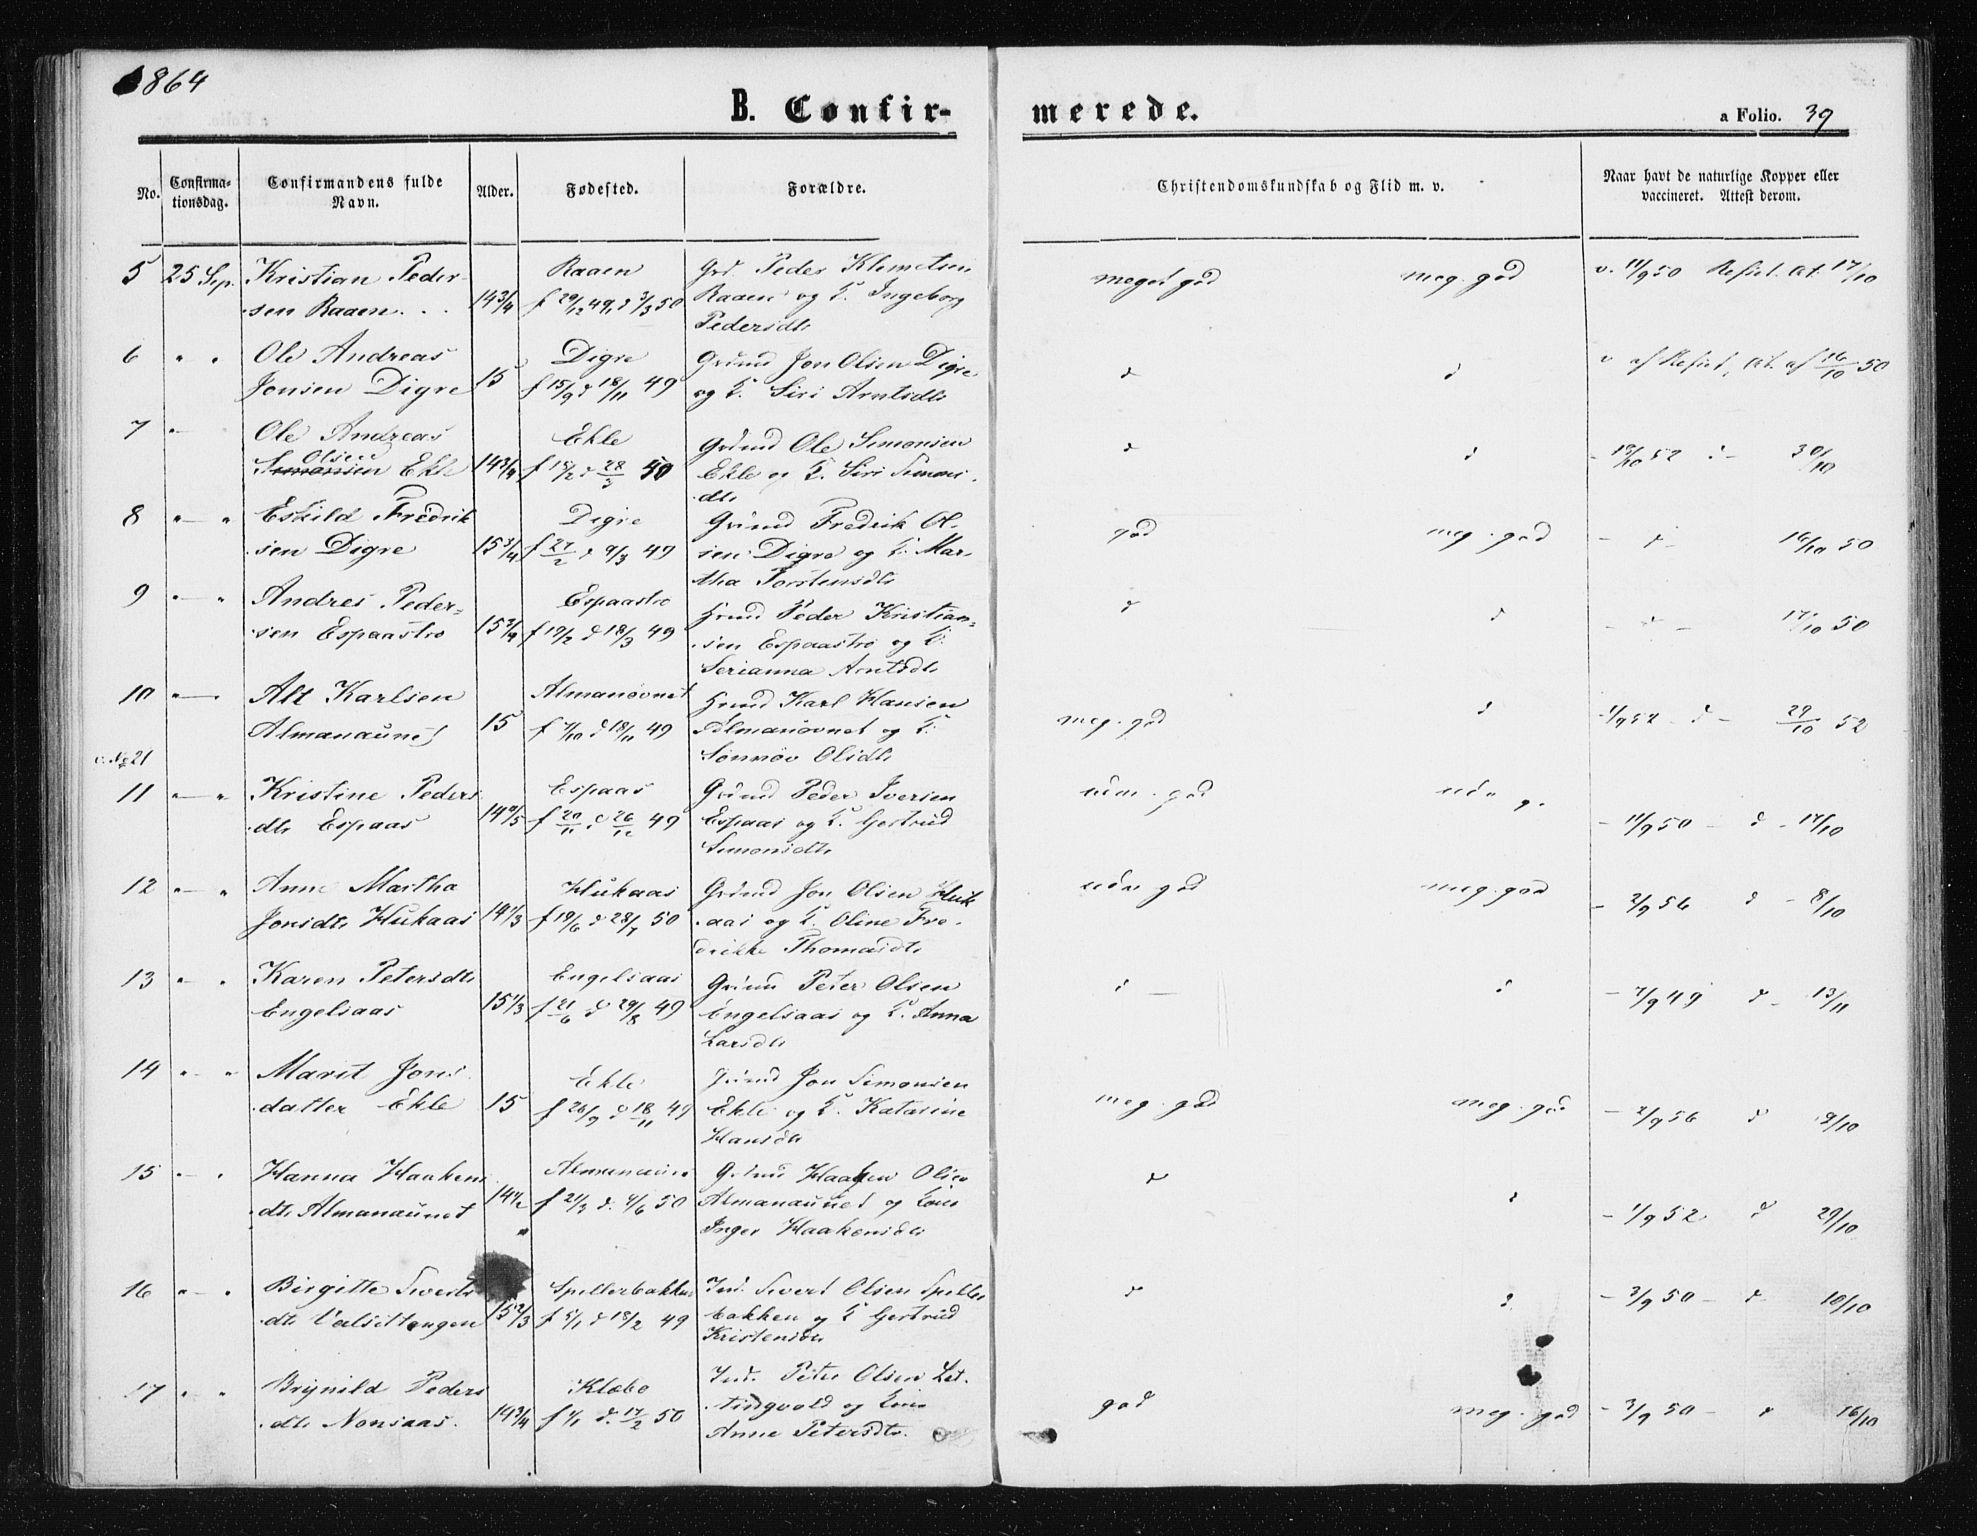 1864
B. Confirmerede.
a Folio. 39
No.
Confirmationsdag.
Confirmandens fulde Navn.
Alder.
Fødested.
Forældre.
Christendomskundskab og Flid m. v.
Naar havt de naturlige Kopper eller vaccineret. Attest derom.
5 25 Sep. Kristian Peder- Raaen Grd. Peder Klemetsen meget god meg. god v. 11/9 50 Refset. At. 17/10
sen Raaen . . . 14 3/4 f 29/12 49, d 3/3 50 Raaen og K. Ingeborg
Pedersdtr
6 " " Ole Andreas Digre Grdmd Jon Olsen Digre d d v af Refset, At. af 16/10 50
Jonsen Digre 15 f 15/9 d 18/11 49 og K. Siri Arntsdtr
7 " Ole Andreas Ekle Grdmd Ole Simonsen d d
Olsen
Simonsen Ekle 14 3/4 f 18/2 d 28/3 50 Ekle og K. Siri Simons - 19/10 52 d - 30/10
dtr
8 " " Eskild Fredrik Digre Grdmd Fredrik Ol- god meg. god - d - 16/10 50
sen Digre 15 3/4 f 27/2 d 9/3 49 sen Digre og K. Mar-
tha Torstensdtr
9 " " Andres Peder- Espaastrø Hsmd Peder Kristian- d d - d - 17/10 50
sen Espaastrø 15 3/4 f 19/2 d 18/3 49 sen Espaastrø og K.
Serianna Arntsdtr
10 " Alt Karlsen Almanøvnet Hsmd Karl Hansen
Almanaunet 15 f 7/10 d 18/11 49 Almanøvnet og K. meg. god d 1/9 52 - d - 29/10 52
v. No 21 Sønnøv Olsdtr
11 " " Kristine Peders Espaas Grdmd Peder Iversen udm. god udm g.
dtr Espaas 14 4/5 f 20/11 d 26/12 49 Espaas og K. Gertrud - 11/9 50 - d - 17/10
Simonsdtr
12 " " Anne Martha Hukaas Grdmd Jon Olsen Huk udm god meg. god
Jonsdtr Hukaas 14 1/3 f 19/6 d 28/7 50 aas og K. Oline Fre- - 2/9 56 d - 8/10
drikke Thomasdtr
13 " " Karen Petersdtr Engelsaas Grdmd Peter Olsen d - d
Engelsaas 15 1/3 f 21/6 d 29/8 49 Engelsaas og K. Anna - 7/9 49 d - 13/11
Larsdtr
14 " " Marit Jons Ekle Grdmd Jon Simonsen
datter Ekle 15 f 26/9 d 18/11 49 Ekle og K. Katarine meg. god meg. god - 2/9 56 d 9/10
Hansdtr
15 " " Hanna Haakens Almanaune Grdmd Haaken Olsen d
dtr Almanaunet 14 1/2 f 21/3 d. 4/6 50 Almanaunet og Kone d - 1/9 52 d 29/10
Inger Haakensdtr
16 " " Birgitte Siverts Spellerbakken Ind. Sivert Olsen Speller d d - 3/9 50 - d 10/10
dtr Valsettangen 15 2/3 f 5/1 d 18/2 49 bakken og K Gertrud
Kristensdtr
17 " " Brynild Peders Klæbo Ind. Peter Olsen Let
dtr Nonsaas. 14 3/4 f 4/1 d. 17/2 50 tingvold og Kone god meg. god - 3/9 50 - d 16/10
Anne Petersdtr.